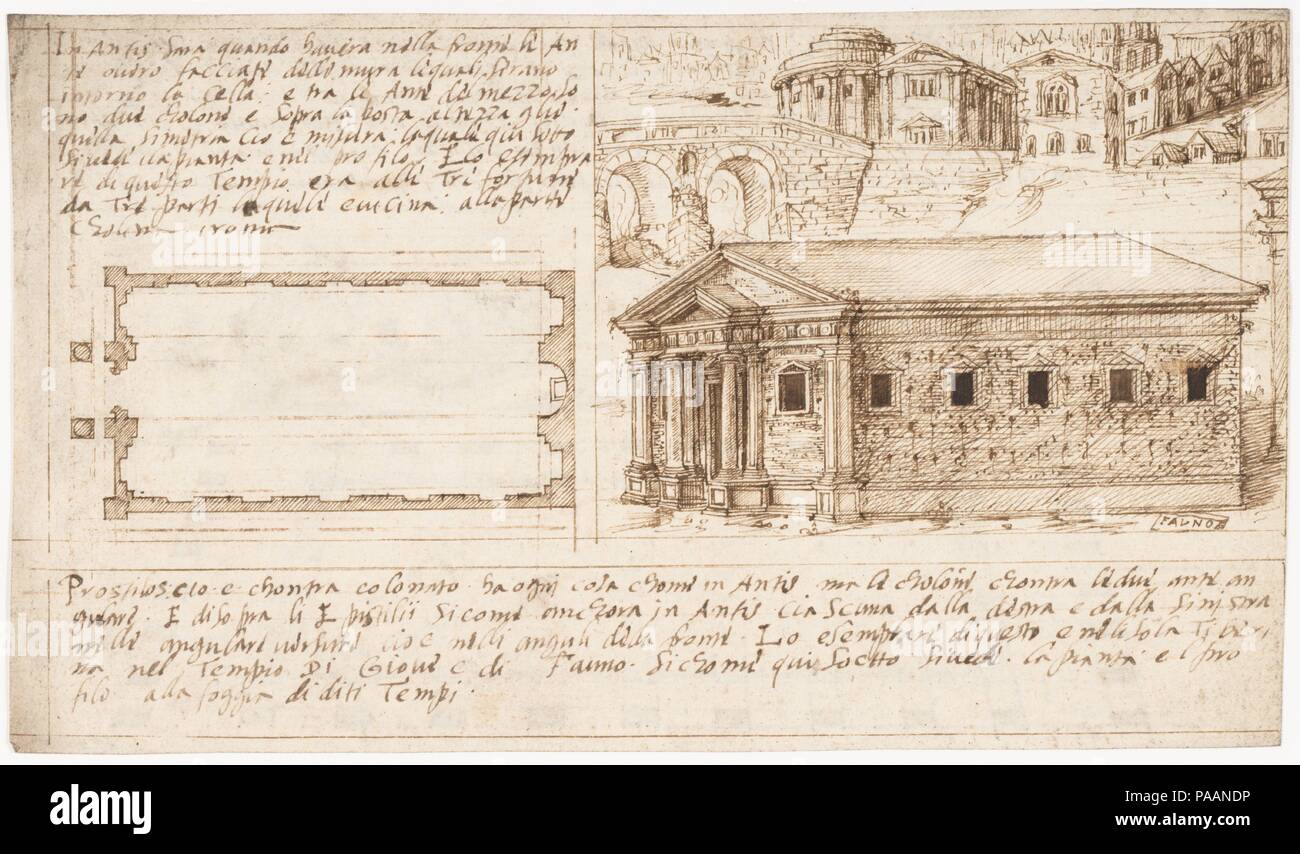 In Antis Sara quando havera nella fronte le An
te overo facciate delle mura lequali serano
intorno la cella. e tra le Ante de mezzo so
no due cholone e sopra la posta altezza
quella Simetria cio e misura laquale qui sotto
si vede la pianta e nel profilo. E lo
re di questo Tempio era alli Tri fortune
da Tre parti laquale e vicina alla porta
Cholina
FAVNO
Prostilos cio e chontra colonato ha ogni cosa chome in Antis ma le cholone chontra le due ante an
gulare. E di sopra li Epistilii Sicome anchora in Antis ciascuna dalla destra e dalla Sinistra
nelle angulare versure cio e nelli anguli della fronte. Lo esemplare di questo e nelisola Tiberi
na nel Tempio Di Giove e di Fauno Sichome qui Soctto Si vede la pianta e l pro
filo alla foggia di diti Tempi.
alamy
Image ID: PAANDP
www.alamy.com